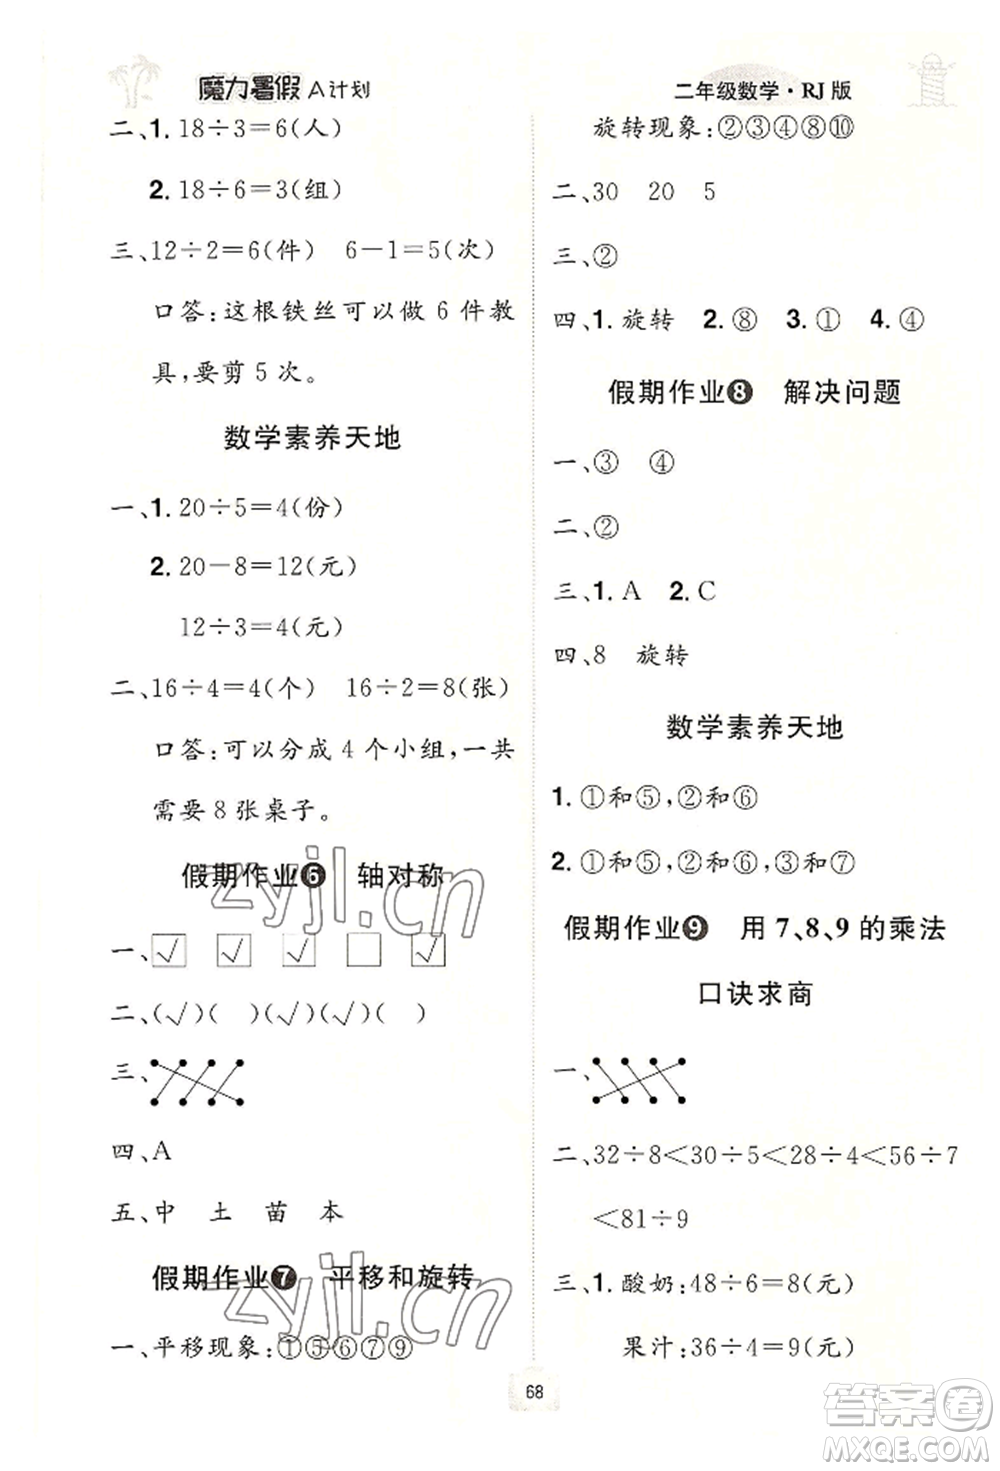 魔力暑假 A计划
二年级数学·RJ版
二、1. 18÷3=6(人)
2. 18÷6=3(组)
三、12÷2=6(件) 6-1=5(次)
口答:这根铁丝可以做 6 件教
具,要剪 5 次。
数学素养天地
一、1. 20÷5=4(份)
2. 20-8=12(元)
12÷3=4(元)
二、16÷4=4(个) 16÷2=8(张)
口答:可以分成 4 个小组,一共
需要 8 张桌子。
假期作业❻ 轴对称
一、☑ ☑ ☑ □ ☑
二、(√)( )(√)(√)( )
三、
四、A
五、中 土 苗 本
假期作业❼ 平移和旋转
一、平移现象:①⑤⑥⑦⑨
旋转现象:②③④⑧⑩
二、30 20 5
三、②
四、1. 旋转 2. ⑧ 3. ① 4. ④
假期作业❽ 解决问题
一、③ ④
二、②
三、1. A 2. C
四、8 旋转
数学素养天地
1. ①和⑤,②和⑥
2. ①和⑤,②和⑥,③和⑦
假期作业❾ 用 7、8、9 的乘法
口诀求商
一、
二、32÷8<30÷5<28÷4<56÷7
<81÷9
三、1. 酸奶:48÷6=8(元)
果汁:36÷4=9(元)
68
zyjl.cn
zyjl.cn
答案圈
MXQE.COM